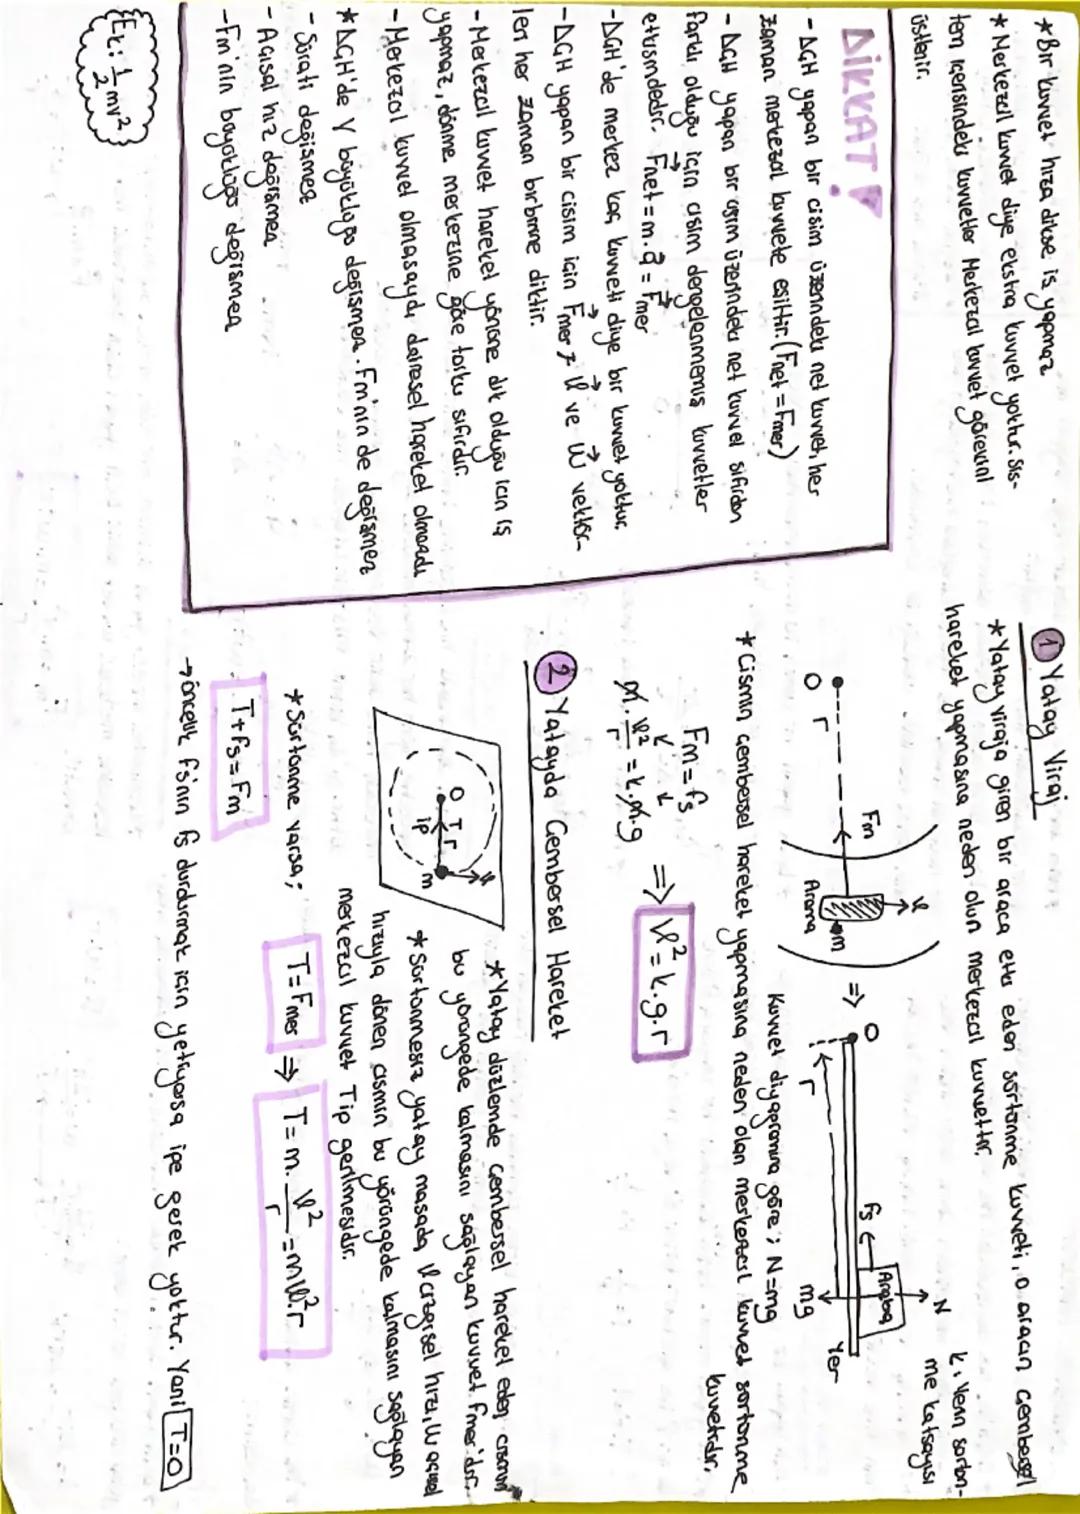 *Bir kuvvet hıza dikse iş yapmaz
* Merkezcil kuvvet diye ekstra kuvvet yoktur. Sis-
tem içerisindeki kuvvetler Merkezcil kuvvet görevini
üstlenir.
DİKKAT!
- DÇH yapan bir cisim üzerindeki net kuvvet, her
zaman merkezcil kuvvete eşittir. (Fnet = Fmer)
- DÇH yapan bir cisim üzerindeki net kuvvet sıfırdan
farklı olduğu için cisim dengelenmemiş kuvvetler
etkisindedir. Fnet = m.a = Fmer
- DÇH'de merkez kaç kuvveti diye bir kuvvet yoktur.
- DÇH yapan bir cisim için Fmer, V ve W vektör-
leri her zaman birbirine diktir.
- Merkezcil kuvvet hareket yönüne dik olduğu için iş
yapmaz, dönme merkezine göre torku sıfırdır.
- Merkezcil kuvvet olmasaydı dairesel hareket olmazdı
* DÇH'de V büyüklüğü değişmez. Fm'nin de değişmez
- Sürati değişmez
- Açısal hız değişmez
- Fm'nin büyüklüğü değişmez
Ek: 1/2 mv²
① Yatay Viraj
* Yatay viraja giren bir araca etki eden sürtünme kuvveti, o aracın çembersel
hareket yapmasına neden olan merkezcil kuvvettir.
O
r
Fm
V
m
Arama
⇒
O
r
Fs
Araba
N
mg
Yer
k: Yerin sürtün-
me katsayısı
Kuvvet diyagramına göre; N=mg
* Cismin çembersel hareket yapmasına neden olan merkezcil kuvvet sürtünme
kuvvetidir.
Fm = fs
m.V²/r = k.m.g ⇒ V² = k.g.r
② Yatayda Çembersel Hareket
O
T
r
ip
m
V
* Yatay düzlemde çembersel hareket eden cismin
bu yörüngede kalmasını sağlayan kuvvet Fmer'dir.
* Sürtünmesiz yatay masada V çizgisel hızı, W açısal
hızıyla dönen cismin bu yörüngede kalmasını sağlayan
merkezcil kuvvet T ip gerilmesidir.
T = Fmer ⇒ T = m.V²/r = mW².r
* Sürtünme varsa;
T + fs = Fm
→ öncelik fs'nin fs durdurmak için yetiyorsa ipe gerek yoktur. Yani T=0